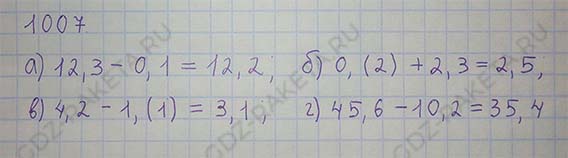 1007.
а) 12,3 – 0,1 = 12,2; б) 0,(2) + 2,3 = 2,5,
в) 4,2 – 1,(1) = 3,1, г) 45,6 – 10,2 = 35,4
GDZ-RAKETA.RU